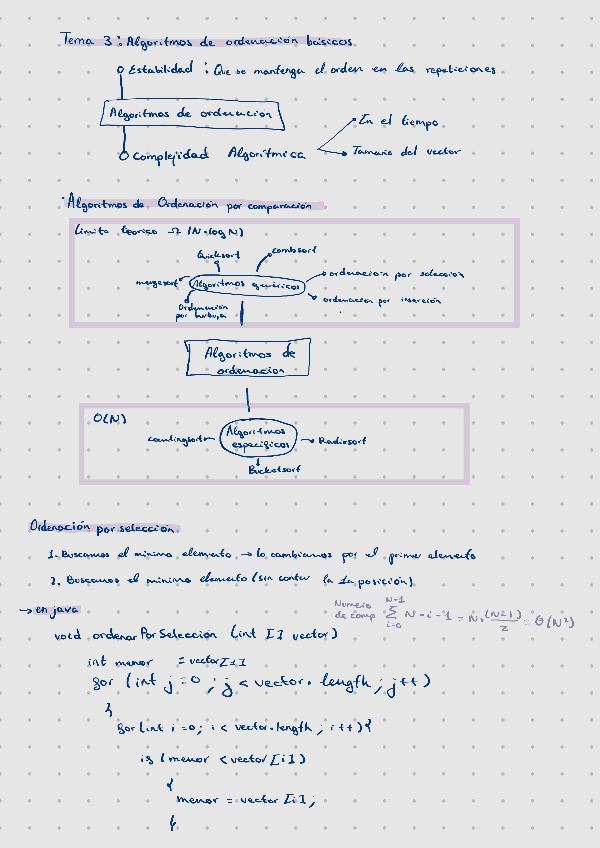 Tema 3: Algoritmos de ordenación básicos
Estabilidad : Que se mantenga el orden en las repeticiones
Algoritmos de ordenacion
Complejidad Algorítmica
En el tiempo
Tamaño del vector
Algoritmos de Ordenación por comparación
Limite teorico Ω(N·log N)
Quicksort
combosort
mergesort
Algoritmos genéricos
ordenacion por selección
ordenacion por inserción
Ordenación
por burbuja
Algoritmos de
ordenacion
O(N)
countingsort
Algoritmos
específicos
Radixsort
Bucketsort
Ordenación por selección
1. Buscamos el minimo elemento → lo cambiamos por el primer elemento
2. Buscamos el minimo elemento (sin contar la 1a posición)
→ en java
Numero
de comp
N-1
∑ N-i-1 = N·(N-1)/2 = Θ(N²)
i=0
void ordenarPorSeleccion (int [] vector)
int menor = vector[1]
for (int j=0 ; j < vector.length ; j++)
{
for(int i=0; i < vector.length ; i++){
if (menor < vector[i])
{
menor = vector[i];
}